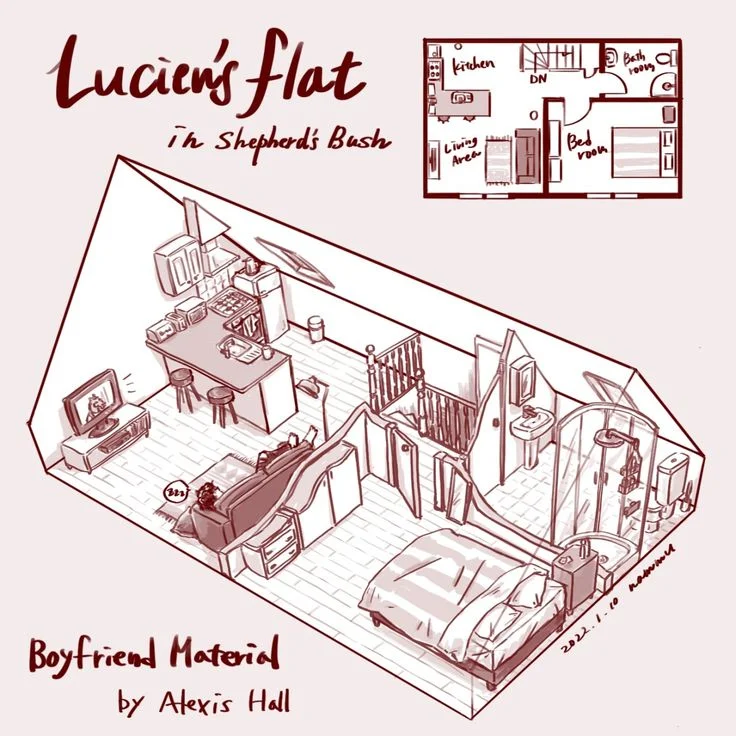 Lucien's flat
in Shepherd's Bush
Kitchen
DN
Bath
room
Living
Area
Bed
room
zzz
2022.1.10
Boyfriend Material
by Alexis Hall